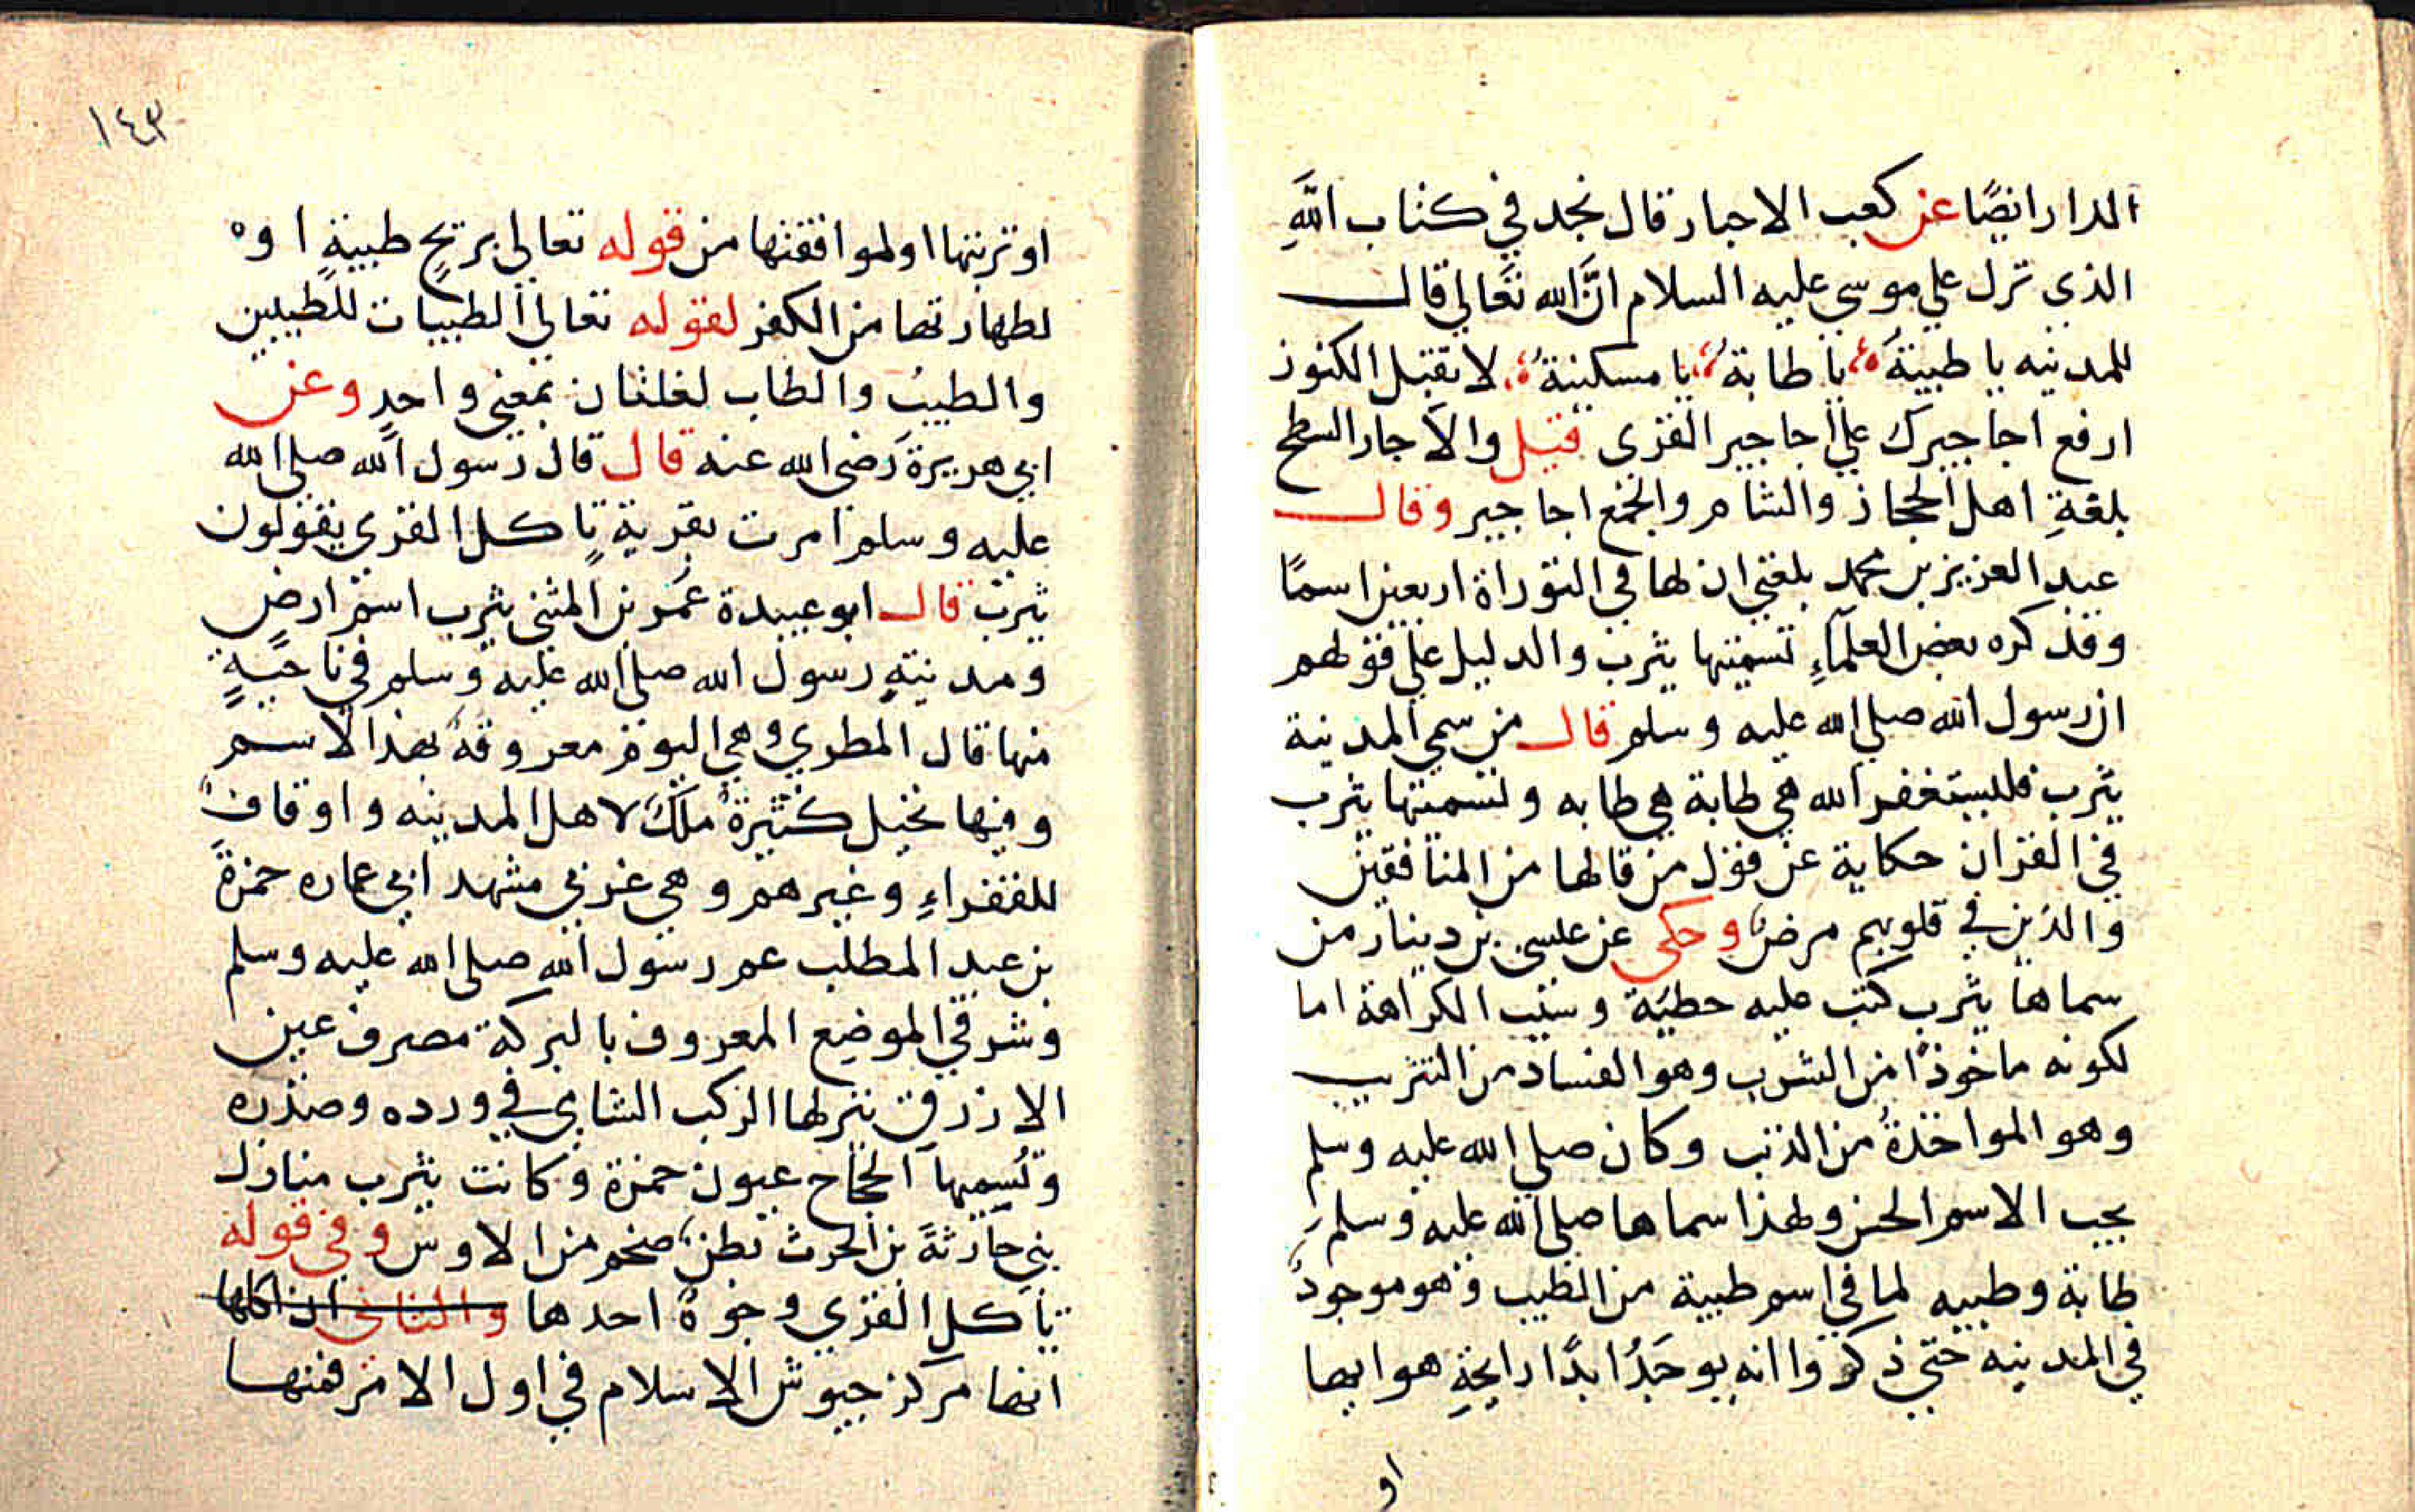 الدار ايضًا عن كعب الاحبار قال نجد في كتاب اللهِ
الذي نزل على موسى عليه السلام انَّ الله تعَالى قال
للمدينه يا طيبةَ يا طابةُ يا مسكينةُ لا تقبل الكنوز
ارفع اجاجيرك على اجاجير القرى قيل والاجار السطح
بلغةِ اهل الحجاز والشام والجمع اجاجير وقال
عبد العزيز بن محمد بلغني ان لها في التوراة اربعين اسمًا
وقد كره بعض العلمآءِ تسميتها يثرب والدليل على قولهم
ان رسول الله صلى الله عليه وسلم قال من سمى المدينة
يثرب فليستغفر الله هي طابة هي طابه وتسميتها يثرب
في القران حكاية عن قول من قالها من المنافقين
والذين في قلوبهم مرضٌ وحكى عن عيسى بن دينار من
سماها يثرب كتب عليه خطيَة وسبب الكراهة اما
لكونه ماخوذًا من الثرب وهو الفساد من التثريب
وهو المواخذةُ من الذنب وكان صلى الله عليه وسلم
يحب الاسم الحسن ولهذا سماها صلى الله عليه وسلم
طابة وطيبه لما في اسم طيبة من الطيب وهو موجودٌ
في المدينه حتى ذكروا انه يوجَدُ ابدًا رايحةِ هوايها
او
١٤٣
او تربتها او لموافقتها من قوله تعالى بريحٍ طيبةٍ او
لطهارتها من الكفر لقوله تعالى الطيبات للطيبين
والطيبُ والطاب لغلتان بمعنى واحدٍ وعن
ابي هريرة رَضى الله عنه قال قال رسول الله صلى الله
عليه وسلم امرت بقريةٍ تاكل القرى يقولون
يثرب قال ابو عبيدة عمَر بن المثنى يثرب اسم ارضٍ
ومدينةِ رسول الله صلى الله عليه وسلم في ناحيةٍ
منها قال المطري وهي اليوم معروفةٌ بهذا الاسم
وفيها نخيل كثيرةٌ ملكٌ لاهل المدينه واوقافٌ
للفقراءِ وغيرهم وهي غربي مشهد ابي عماره حمزةَ
بن عبد المطلب عم رسول الله صلى الله عليه وسلم
وشرقي الموضع المعروف بالبركة مصرف عين
الازرق ينزلها الركب الشامي في ورده وصدره
وتُسميهآ الحجاج عيون حمزة وكانت يثرب منازل
بني حَارثةَ بن الحرث بَطنٌ ضخم من الاوس وفي قوله
تاكل القرى وجوهٌ احدها والثاني ان اكلها
انها مركز جيوش الاسلام في اول الامر فمنها